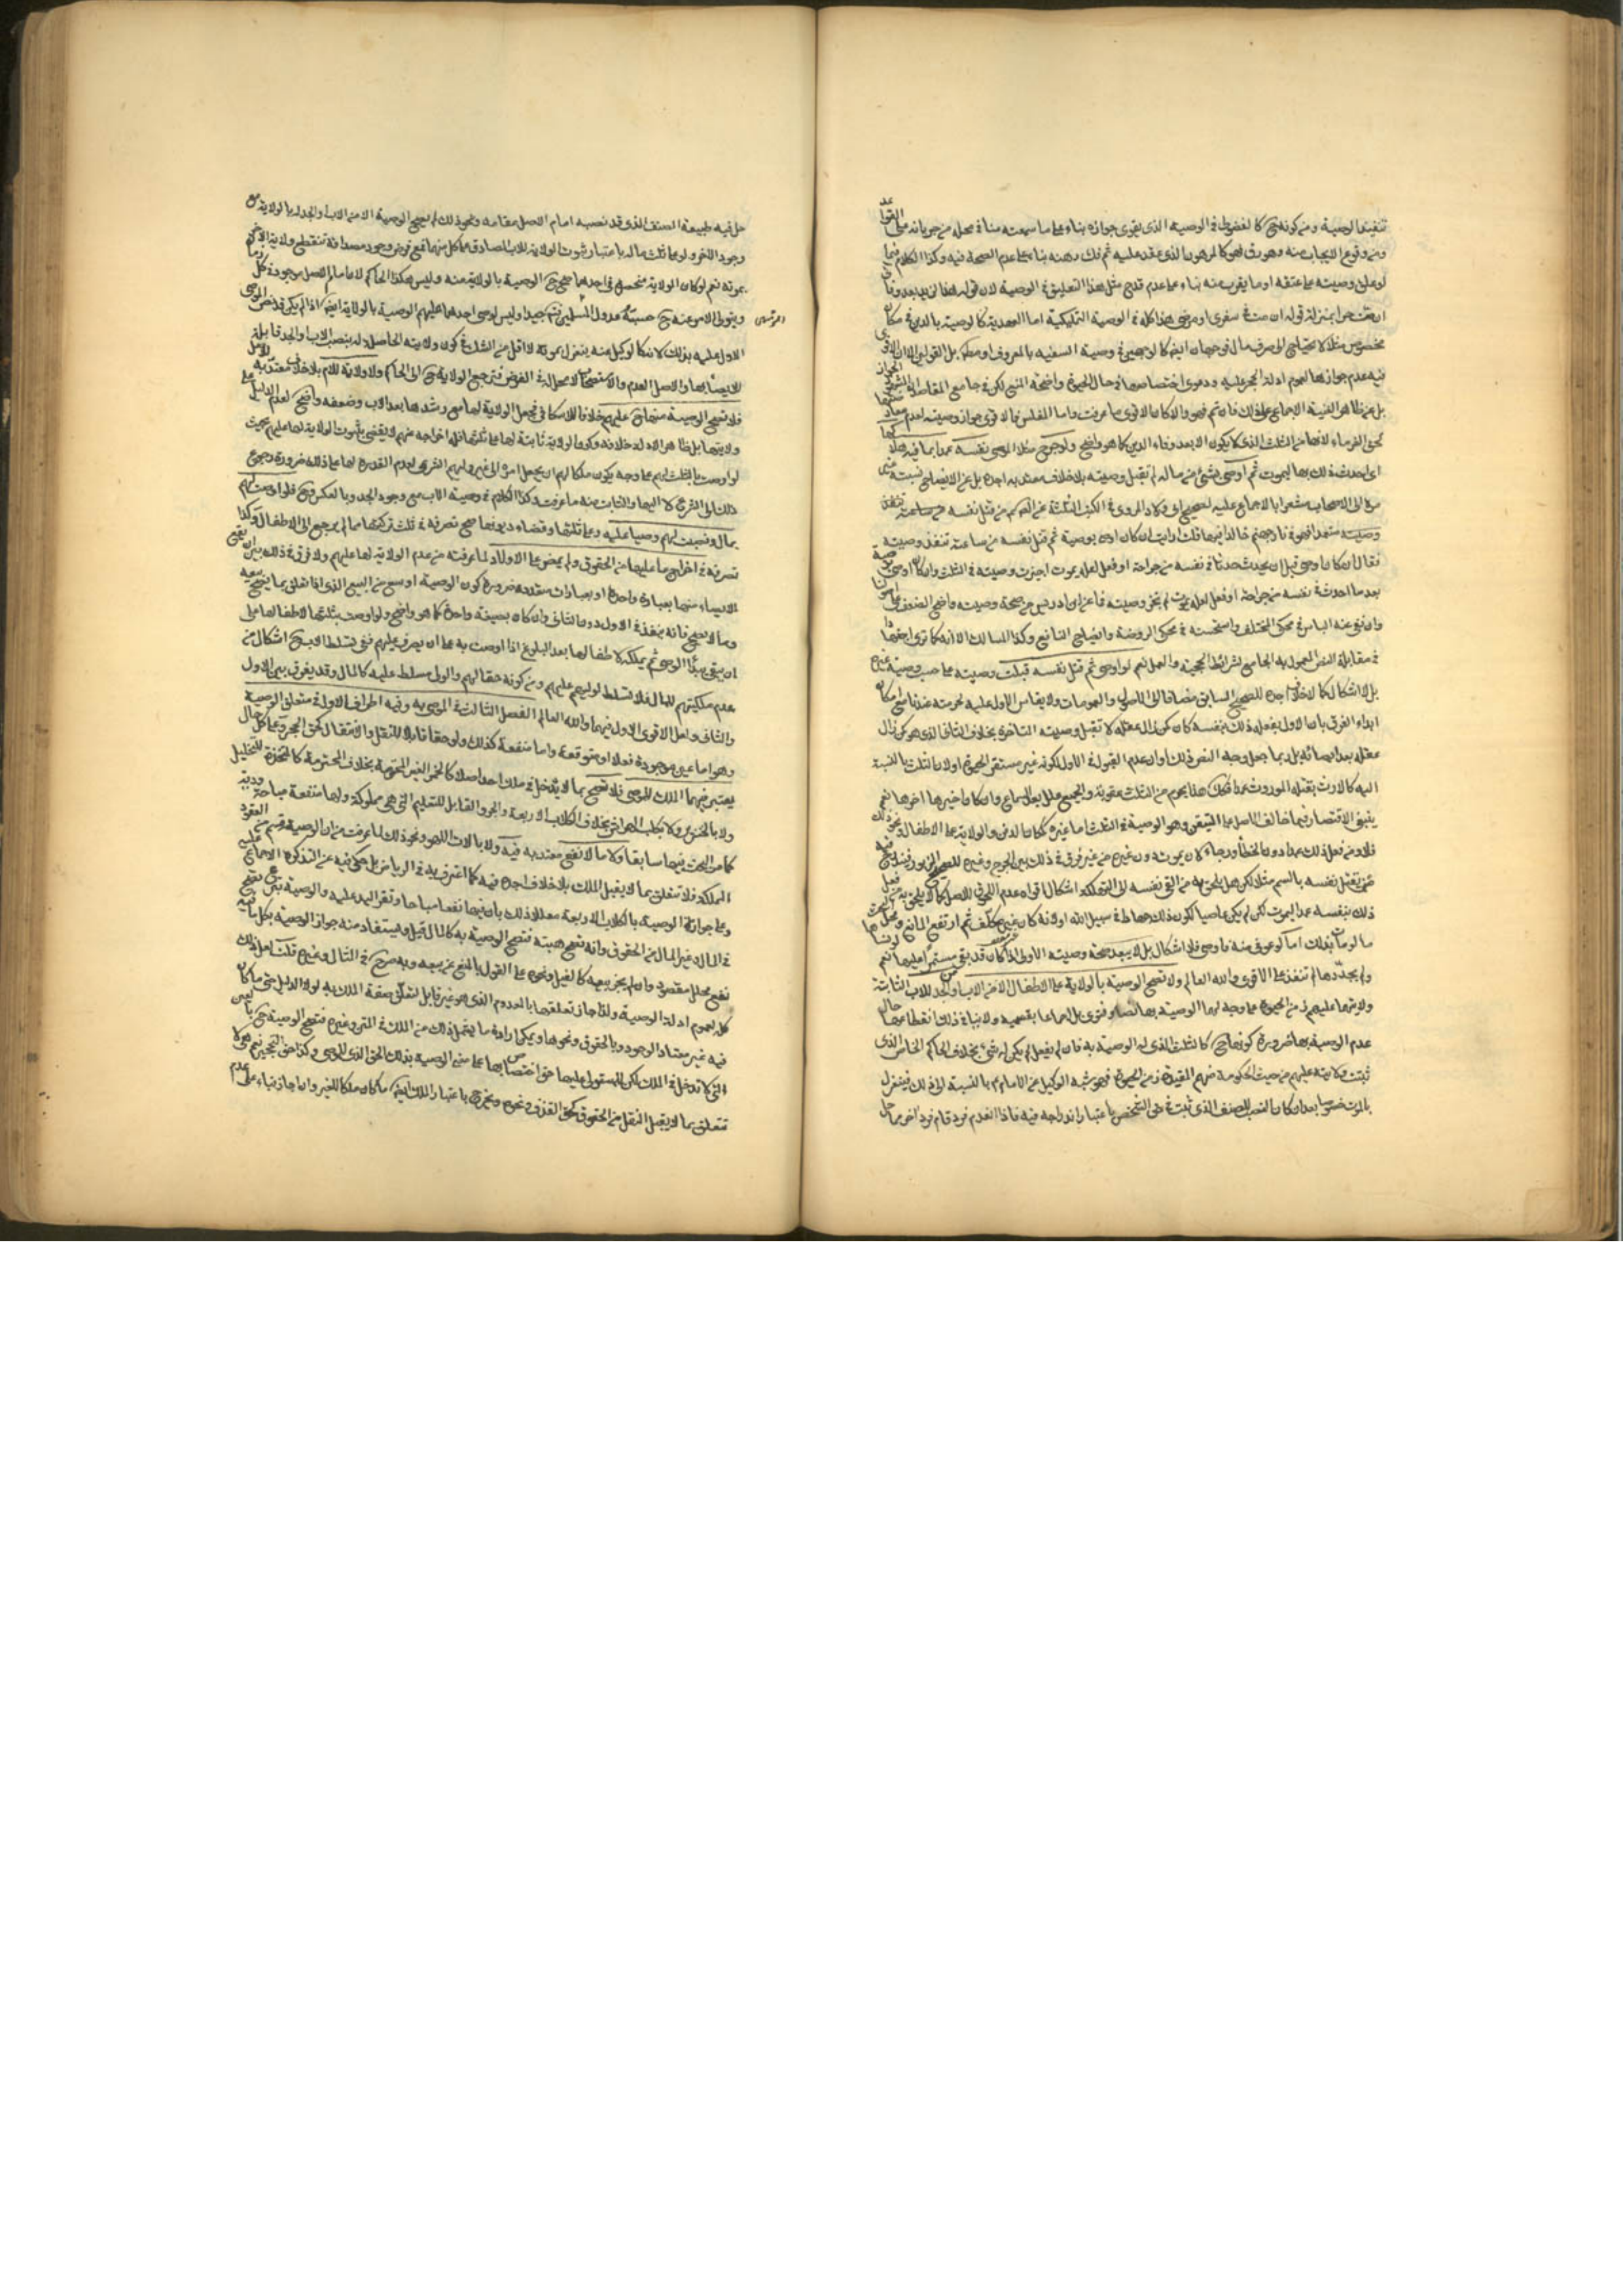 تنفيذ الوصية ومن كونه كالفضولي في الوصية الذي يقوى جوازه بناء على ما سمعته منا في محله من جريانه على القواعد
ومن وقوع الايجاب منه وهو رق فهو كالمرهون الذي عقد عليه ثم فك وهنه بناء على عدم الصحة فيه وكذا الكلام فيما
لو علق وصيته على عتقه او ما يقرب منه بناء على عدم قدح مثل هذا التعليق في الوصية لان قوله هذا لزيد بعد وفاتي
ان عتقت حرا بمنزلة قوله ان مت في سفري او مرضي هذا كله في الوصية التمليكية اما العهدية كالوصية بالدفن في مكان
مخصوص مثلا لا يحتاج الى صرف مال فوجهان ايضا كالوجهين في وصية السفيه بالمعروف او مطلقا بل القولين الا ان الاقوى
فيه عدم جوازها لعموم ادلة الحجر عليه ودعوى اختصاصها في حال الحيوة واضحة المنع لكن في جامع المقاصد ان المشهور الجواز
بل عن ظاهر الغنية الاجماع على ذلك فان تم فهو والا كان الاقوى ما عرفت واما المفلس فالاقوى جواز وصيته لعدم
لحق الغرماء لانها من الثلث الذي لا يكون الا بعد وفاء الدين كما هو واضح ولو جرح مثلا الموصي نفسه عمدا بما فيه هلاكها
اى احدث ذلك بها ليموت ثم اوصى بشئ من ماله لم تقبل وصيته بلا خلاف معتد به اجده بل عن الايضاح نسبته
الى الاصحاب مشعرا بالاجماع عليه لصحيح ابي ولاد المروي في الكتب الثلثة عن الصادق من قتل نفسه
متعمدا فهو في نار جهنم خالدا فيها قلت ارايت ان كان اوصى بوصية ثم قتل نفسه من ساعته تنفذ وصيته
فقال ان كان اوصى قبل ان يحدث حدثا في نفسه من جراحة او فعل لعله يموت اجيزت وصيته في الثلث وان كان اوصى بوصية
بعد ما احدث في نفسه من جراحة او فعل لعله يموت لم تجز وصيته فما عن ابن ادريس من صحة وصيته واضح الضعف
وان نفى عنه الباس في محكي المختلف واستحسنه في محكي الروضة وايضاح النافع وكذا المسالك الا انه كما ترى اجتهاد
في مقابلة النص المعمول به الجامع لشرائط الحجية والعمل نعم لو اوصى ثم قتل نفسه قبلت وصيته
بلا اشكال كما لا خلاف اجده للصحيح السابق مضافا الى الاصول والعمومات ولا يقاس الاول عليه لحرمته عندنا مع امكان
ابداء الفرق بان الاول بفعله ذلك بنفسه كان كمن زال عقله لا تقبل وصيته المتأخرة بخلاف الثاني الذي هو كمن زال
عقله بعد ايصائه بل ربما جعل وجه النص ذلك وان عدم القبول في الاول لكونه غير مستقر الحيوة او لان الثلث بالنسبة
اليه كالارث بقتله الموروث عمدا فكما هنا يحرم من الثلث عقوبة والجميع علل بعد السماع وان كان خيرها اخرها نعم
ينبغي الاقتصار فيما خالف الاصل على المتيقن وهو الوصية في الثلث اما غيره كمكان الدفن والولاية على الاطفال ونحو ذلك
فلا ومن فعل ذلك عمدا دون الخطأ ورجاء لان يموت ومن غيره من غير فرق في ذلك بين الجرح وغيره للصحيح المزبور
ذلك بنفسه عمدا ليموت لكن لم يكن عاصيا لكون ذلك جهادا في سبيل الله او لانه كان غير مكلف ثم ارتفع المانع
ما لو مات بذلك اما لو عوفي منه فاوصى فلا اشكال بل لا يبعد صحة وصيته الاولى اذا كان قد بقي مستمرا عليها نعم
ولم يجددها لم تنفذ على الاقوى والله العالم ولا تصح الوصية بالولاية على الاطفال الا من الاب والجد للاب الثابتة
ولايتهما عليهم زمن الحيوة على وجه لهما الوصية بها نصا وفتوى بل اجماعا بقسميه ولا ينافي ذلك انقطاعها حال
عدم الوصية بها ضرورة كونها ح كالثلث الذي له الوصية به فان لم يفعل لم يكن له شئ بخلاف الحاكم الخاص الذي
ثبتت ولايته عليهم من حيث الحكومة منهم المقيدة زمن الحيوة فهو شبه الوكيل عن الامام ع بالنسبة الى ذلك فينعزل
بالموت خصوصا بعد ان كان النصب للصنف الذي ثبت في ذي الشخص باعتبار اندراجه فيه فاذا انعدم فرد قام فرد اخر مما حل
حل فيه طبيعة الصنف الذي قد نصبه امام الاصل مقامه ونحو ذلك لم يصح الوصية الا من الاب او الجد له بالولاية مع
وجود الاخر ولو على ثلث ماله باعتبار ثبوت الولاية للاب الصادق على كل منهما فمع فرض وجود مصداقه تنقطع ولاية الاخر
بموته نعم لو كان الولاية منحصرة في احدهما صح ح الوصية بالولاية منه وليس هكذا الحاكم لا امام الاصل موجود في كل زمان
ويتولى الامر عنه ح حسبة عدول المسلمين فتامل جيدا وليس لوصي احدهما عليهم الوصية بالولاية ايضا اذا لم يكن قد نص الموصي
الاول عليه بذلك لانه كالوكيل عنه ينعزل بموته لا اقل من الشك في كون ولايته الحاصلة له بنصب الاب والجد قابلة
للايصاء بها والاصل العدم والاستصحاب لا محل له في الفرض فترجع الولاية ح الى الحاكم ولا ولاية للام بلا خلاف معتد به
فلا تصح الوصية منها ح عليهم خلافا للاسكافي فجعل الولاية لها مع رشدها بعد الاب وضعفه واضح لعدم الدليل على
ولايتها بل ظاهر الادلة خلافه وكون الولاية ثابتة لها على ثلثها فلها اخراجه عنهم لا يقضي بثبوت الولاية لها عليهم بحيث
لو اوصت بالثلث لهم على وجه يكون ملكا لهم ان يجعل امره الى غير وليهم الشرعي لعدم القدرة لها على ذلك ضرورة رجوع
ذلك الى الشرع لا اليها والثابت منه ما عرفت وكذا الكلام في وصية الاب مع وجود الجد وبالعكس وح فلو اوصت لهم
بمال ونصبت لهم وصيا عليه وعلى ثلثها وقضاء ديونها صح تصرفه في ثلث تركتها مما لم يرجع الى الاطفال وكذا
تصرفه في اخراج ما عليها من الحقوق ولم يمض على الاولاد لما عرفته من عدم الولاية لها عليهم ولا فرق في ذلك بين ان يقع
الايصاء منها بعبارة واحدة او بعبارات متعددة ضرورة كون الوصية اوسع من البيع الذي اذا تعلق بما يصح بيعه
وما لا يصح فانه ينفذ في الاول دون الثاني وان كان بصيغة واحدة كما هو واضح ولو اوصت بثلثها لاطفالها على
ان يبقى بيد الوصي ثم يملكه لاطفالها بعد البلوغ او اوصت به على ان يصرف عليهم ففي تسلط الاب ح اشكال من
عدم ملكيتهم للمال فلا تسلط لوليهم عليهم ومن كونه حقا لهم والولي مسلط عليه كالمال وقد يفرق بين الاول
والثاني ولعل الاقوى الاول فيهما والله العالم الفصل الثالث في الموصى به وفيه اطراف الاول في متعلق الوصية
وهو اما عين موجودة فعلا او متوقعة واما منفعة كذلك ولو حقا قابلا للنقل والانتقال كحق التحجير وعلى كل حال
يعتبر فيهما الملك للموصي فلا تصح بما لا يدخل في ملك احد اصلا كالخمر الغير المحترمة بخلاف المحترمة كالمتخذة للتخليل
ولا بالخنزير ولا بكلب الهراش بخلاف الكلاب الاربعة والجرو القابل للتعليم التي هي مملوكة ولها منفعة مباحة ودية
كما مر البحث فيها سابقا ولا ما لا نفع معتد به فيه ولا بالات اللهو ونحو ذلك لما عرفت من ان الوصية قسم من العقود
المملكة فلا تتعلق بما لا يقبل الملك بلا خلاف اجده فيه كما اعترف به في الرياض بل حكى فيه عن التذكرة الاجماع عليه
وعلى جواز الوصية بالكلاب الاربعة معللا ذلك بان فيها نفعا مباحا وتقر اليد عليه والوصية تبرع تصح
في المال وغير المال من الحقوق وانه تصح هبته فتصح الوصية به كالمال قيل ويستفاد منه جواز الوصية بكل ما فيه
نفع محلل مقصود وان لم يجز بيعه كالفيل ونحوه على القول بالمنع عن بيعه وبه صرح في التنقيح وغيره قلت لعل ذلك
كله لعموم ادلة الوصية ولذا جاز تعلقها بالمعدوم الذي هو غير قابل لتعلق صفة الملك به لولا الدليل حتى ما كان
فيه غير معتاد الوجود وبالحقوق ونحوها ويمكن ارادة ما يشمل ذلك من الملك في المتن وغيره فتصح الوصية ح بالعين
التي لا تدخل في الملك لكن للمستولي عليها حق اختصاص بها على معنى الوصية بذلك الحق الذي للموصي وكذا حق التحجير نعم هي لا
تتعلق بما لا يقبل النقل من الحقوق كحق القذف ونحوه ويخرج باعتبار الملك ايضا ما كان ملكا للغير وان اجاز بناء على عدم